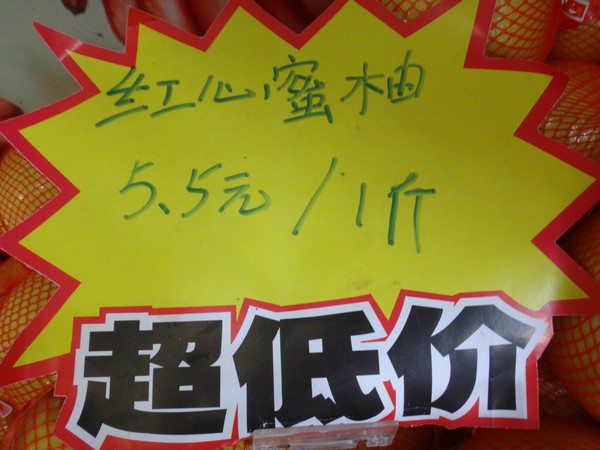 红心蜜柚
5.5元/1斤
超低价